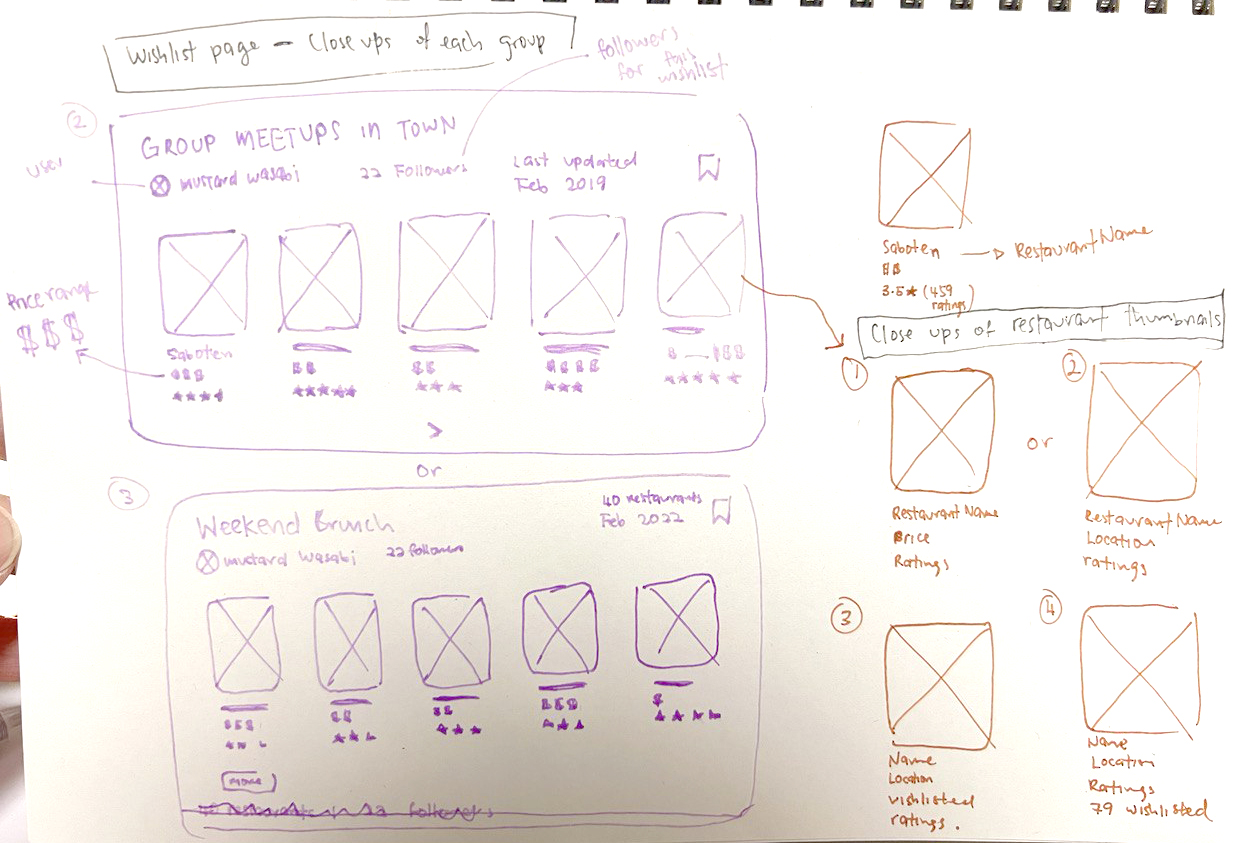 Wishlist page - Close ups of each group
followers
for this
wishlist
2
GROUP MEETUPS IN TOWN
user
mustard wasabi
22 Followers
Last updated
Feb 2019
Price range
$$$
Saboten
$$$
$$
$$
$$$$
$ — $$$
>
or
3
Weekend Brunch
40 restaurants
Feb 2022
mustard wasabi
22 followers
$$$
$$
$$
$$$
$
more
Saboten → Restaurant Name
$$
3.5★ (459
ratings)
Close ups of restaurant thumbnails
1
Restaurant Name
Price
Ratings
or
2
Restaurant Name
Location
ratings
3
Name
Location
vishlisted
ratings.
4
Name
Location
Ratings
79 wishlisted